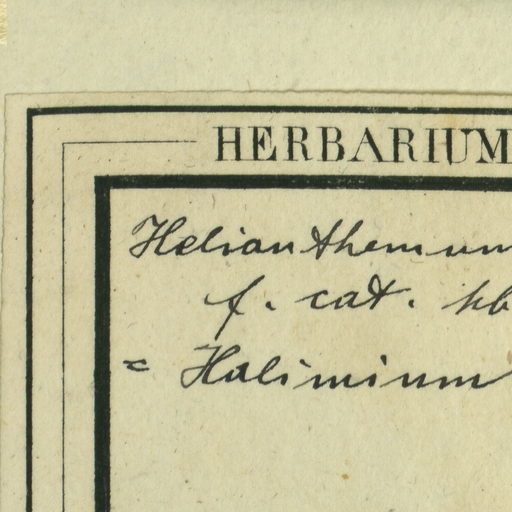 HERBARIUM
Helianthemum
f. cat. hb
= Halimium